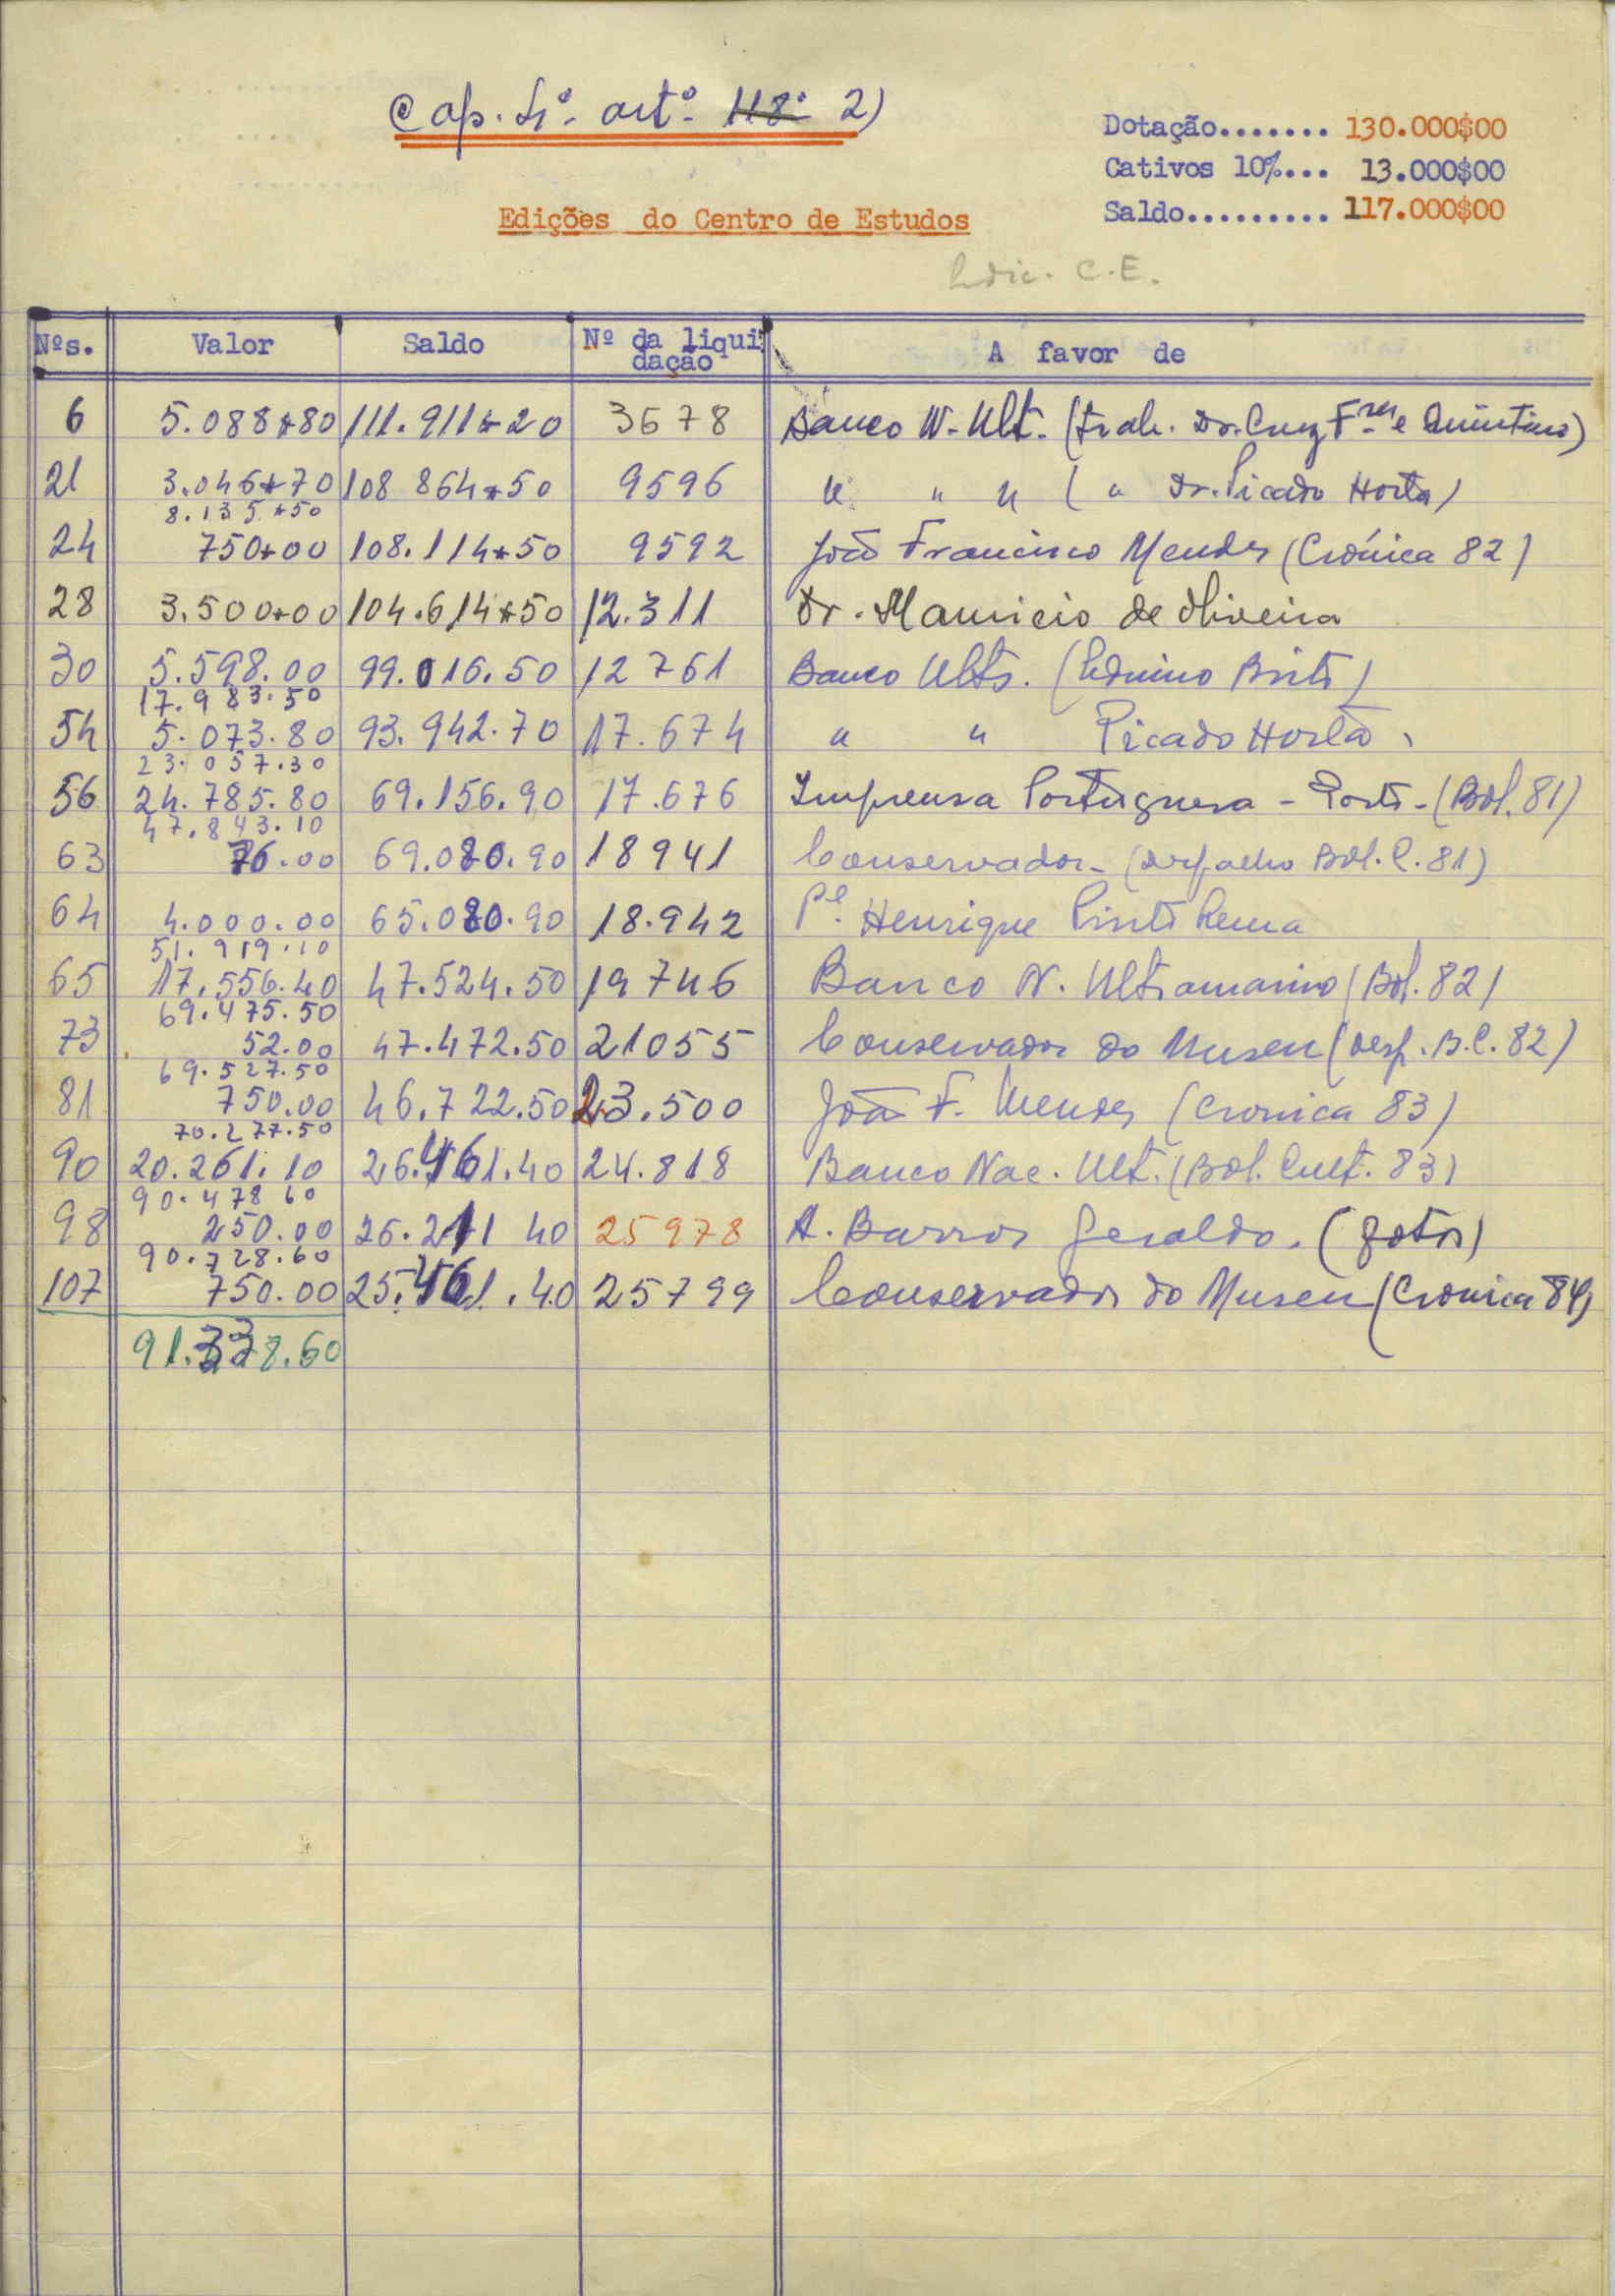 Cap. 4º. artº. 118º 2)
Dotação....... 130.000$00
Cativos 10%... 13.000$00
Saldo......... 117.000$00
Edições do Centro de Estudos
Edic. C.E.
Nºs. Valor Saldo Nº da liqui A favor de
dação
6 5.088$80 111.911$20 3678 Banco N. Ult. (trab. Dr. Cruz Frres e Quintino)
21 3.046$70 108 864$50 9596 " " " ( " Dr. Picado Horta)
8.135$50
24 750$00 108.114$50 9592 João Francisco Mendes (Crónica 82)
28 3.500$00 104.614$50 12.311 Dr. Mauricio de Oliveira
30 5.598.00 99.016.50 12 761 Banco Ultr. (Edmino Brito)
17.983.50
54 5.073.80 93.942.70 17.674 " " Picado Horta
23.057.30
56 24.785.80 69.156.90 17.676 Imprensa Portuguesa - Porto - (Bol. 81)
47.843.10
63 76.00 69.080.90 18941 Conservador - (despacho Bol. C. 81)
64 4.000.00 65.080.90 18.942 Pe. Henrique Pinto Rema
51.919.10
65 17.556.40 47.524.50 19746 Banco N. Ultramarino (Bol. 82)
69.475.50
73 52.00 47.472.50 21055 Conservador do Museu (desp. B.C. 82)
69.527.50
81 750.00 46.722.50 23.500 João F. Mendes (Cronica 83)
70.277.50
90 20.261.10 26.461.40 24.818 Banco Nac. Ult. (Bol. Cult. 83)
90.478 60
98 250.00 26.211 40 25978 A. Barros Geraldo. (fotos)
90.728.60
107 750.00 25.461.40 25799 Conservador do Museu (Cronica 84)
91.338.60